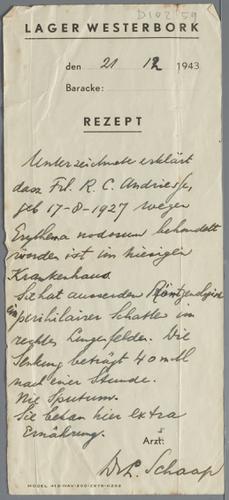 D102 59
LAGER WESTERBORK
den 21 12 1943
Baracke:
REZEPT
Unterzeichnete erklärt
dasz Frl. R. C. Andriesse,
geb 17-8-1927 wegen
Erythema nodosum behandelt
worden ist im hiesigen
Krankenhaus.
Sie hat ausserdem Röntgenologisch
ein perihilairer Schatten im
rechten Lungenfelde. Die
Senkung beträgt 40 mM
nach einer Stunde.
Nie Sputum.
Sie bekam hier extra
Ernährung.
Arzt:
Dr. Schaap